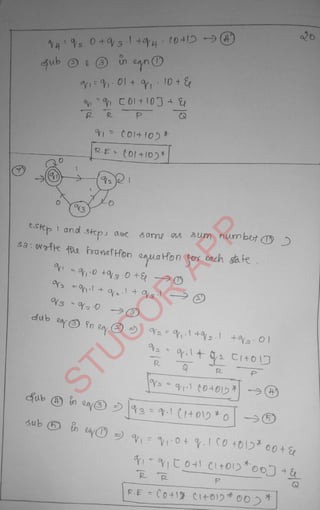 q4 = q2 0 + q3 1 + q4 (0+1) → (4)
20
Sub (2) & (3) in eqn (1)
q1 = q1 01 + q1 10 + ε
q1 = q1 [01+10] + ε
R R P Q
q1 = (01+10)*
R.E = (01+10)*
0
q1 1 q2 1
0 1 0
q3
Step 1 and step 2 are same as sum number (1) )
S3: write the transition equation for each state.
q1 = q1.0 + q3.0 + ε → (1)
q2 = q1.1 + q2.1 + q3.1 → (2)
q3 = q2 0 → (3)
Sub eq (3) in eq (2) ⇒ q2 = q1.1 + q2.1 + q2.01
q2 = q1.1 + q2 [1+01]
R Q R P
q2 = q1.1 (0+01)* → (4)
Sub (4) in eq (3) ⇒ q3 = q1.1 (1+01)* 0 → (5)
Sub (5) in eq (1) ⇒ q1 = q1.0 + q1.1 (0+01)* 00 + ε
q1 = q1 [0+1 (1+01)* 00] + ε
R R P Q
R.E = (0+1) (1+01)* 00)*
STUCOR APP